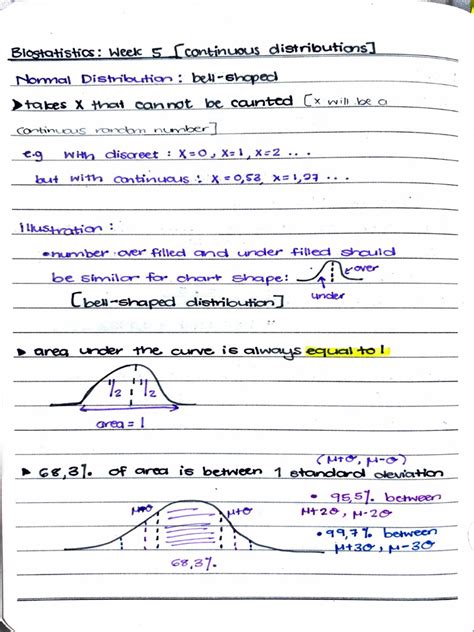 Biostatistics: Week 5 [continuous distributions]
Normal Distribution: bell-shaped
➤ takes X that cannot be counted [x will be a
continuous random number]
e.g with discreet : X=0, X=1, X=2 ...
but with continuous : X=0,53, X=1,27 ...
Illustration :
• number over filled and under filled should
be similar for chart shape:
over
under
[bell-shaped distribution]
➤ area under the curve is always equal to 1
1/2 1/2
area = 1
(μ+σ, μ-σ)
➤ 68,3% of area is between 1 standard deviation
• 95,5% between
μ+2σ, μ-2σ
• 99,7% between
μ+3σ, μ-3σ
μ+σ
68,3%